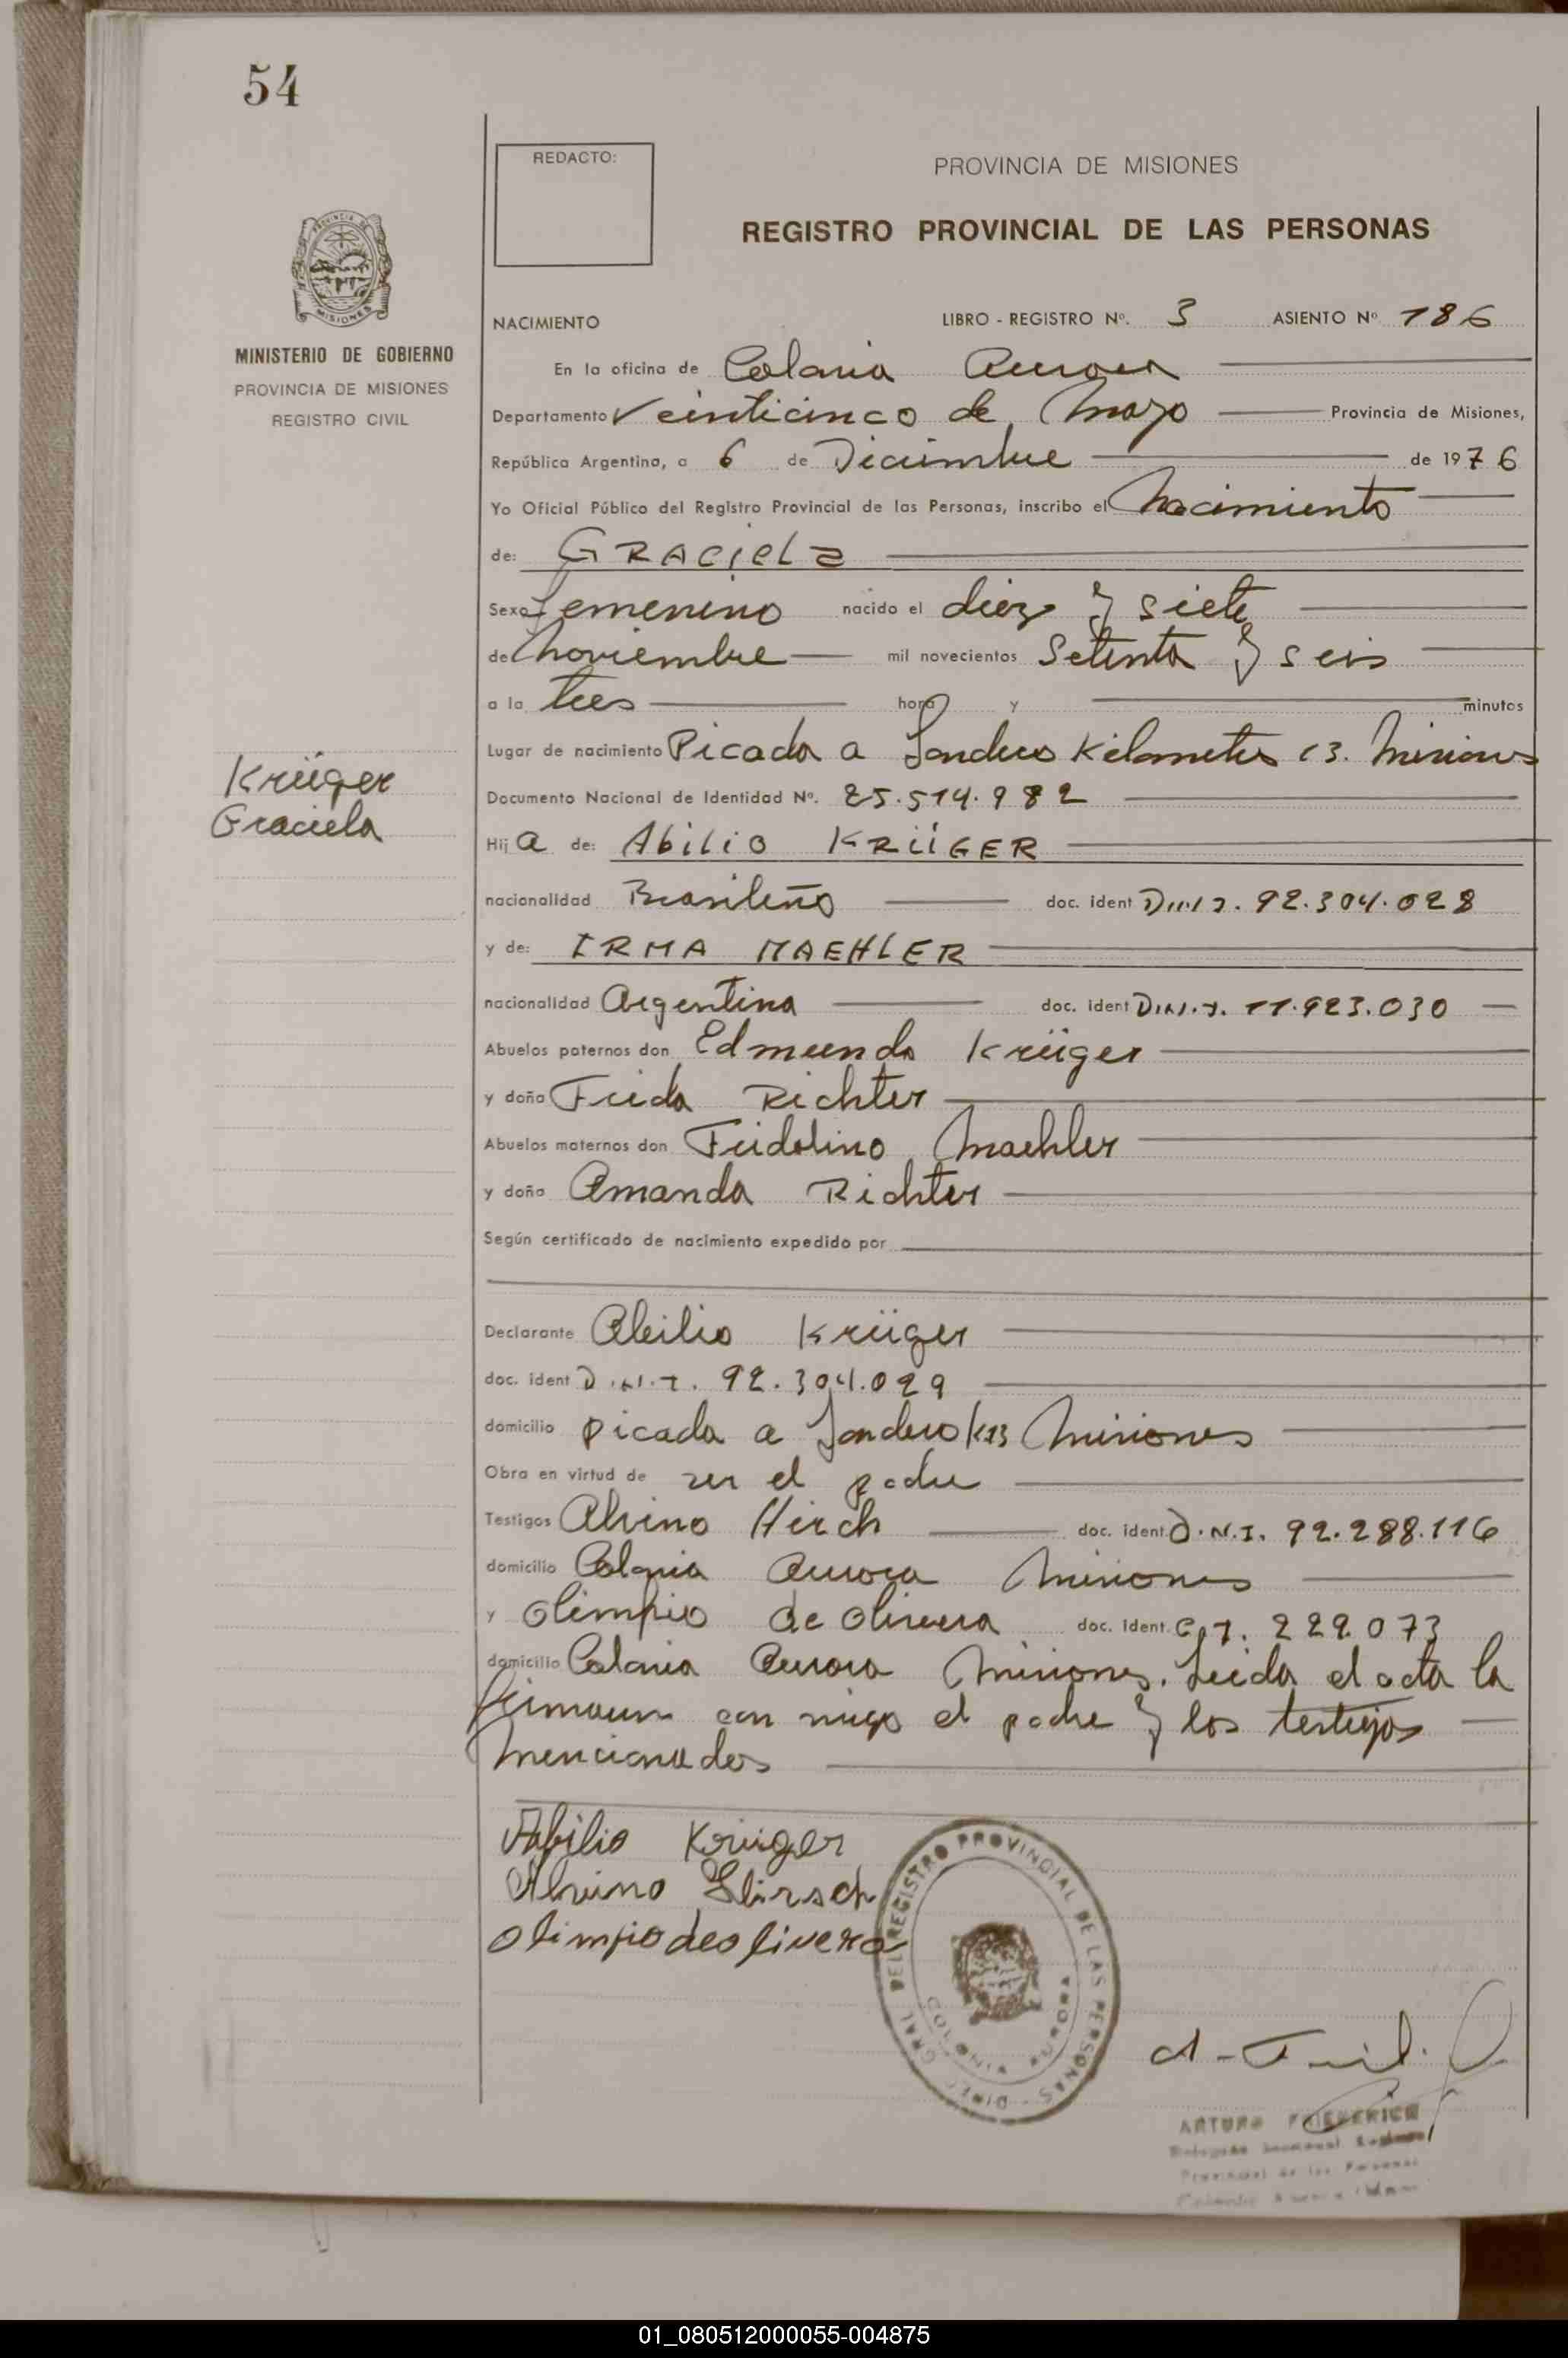 54
REDACTO:
PROVINCIA DE MISIONES
REGISTRO PROVINCIAL DE LAS PERSONAS
MINISTERIO DE GOBIERNO
PROVINCIA DE MISIONES
REGISTRO CIVIL
NACIMIENTO LIBRO - REGISTRO Nº. 3 ASIENTO Nº 186
En la oficina de Colonia Aurora
Departamento Veinticinco de Mayo Provincia de Misiones,
República Argentina, a 6 de Diciembre de 1976
Yo Oficial Público del Registro Provincial de las Personas, inscribo el Nacimiento
de: GRACIELA
Sexo femenino nacido el diez y siete
de Noviembre mil novecientos Setenta y seis
a la tres hora y minutos
Lugar de nacimiento Picada a Londero Kilometro 13. Misiones
Krüger
Graciela
Documento Nacional de Identidad Nº. 25.514.982
Hija de: Abilio KRÜGER
nacionalidad Brasileño doc. ident D.N.I. 92.304.028
y de: IRMA MAEHLER
nacionalidad Argentina doc. ident D.N.I. 11.923.030
Abuelos paternos don Edmundo Krüger
y doña Frida Richter
Abuelos maternos don Fridolino Maehler
y doña Amanda Richter
Según certificado de nacimiento expedido por
Declarante Abilio Krüger
doc. ident D.N.I. 92.304.029
domicilio picada a Londero K13 Misiones
Obra en virtud de ser el padre
Testigos Alvino Hirch doc. ident. D.N.I. 92.288.116
domicilio Colonia Aurora Misiones
y Olimpio de Olivera doc. ident. C.I. 229.073
domicilio Colonia Aurora Misiones. Leida el acta la
firmaun con migo el padre y los testigos
mencionados
Abilio Krüger
Alvino Hirsch
Olimpio deolivera
DIREC. GRAL. DEL REGISTRO PROVINCIAL DE LAS PERSONAS
COLONIA AURORA
ARTURO FRIEDERICH
Provincial de las Personas
01_080512000055-004875